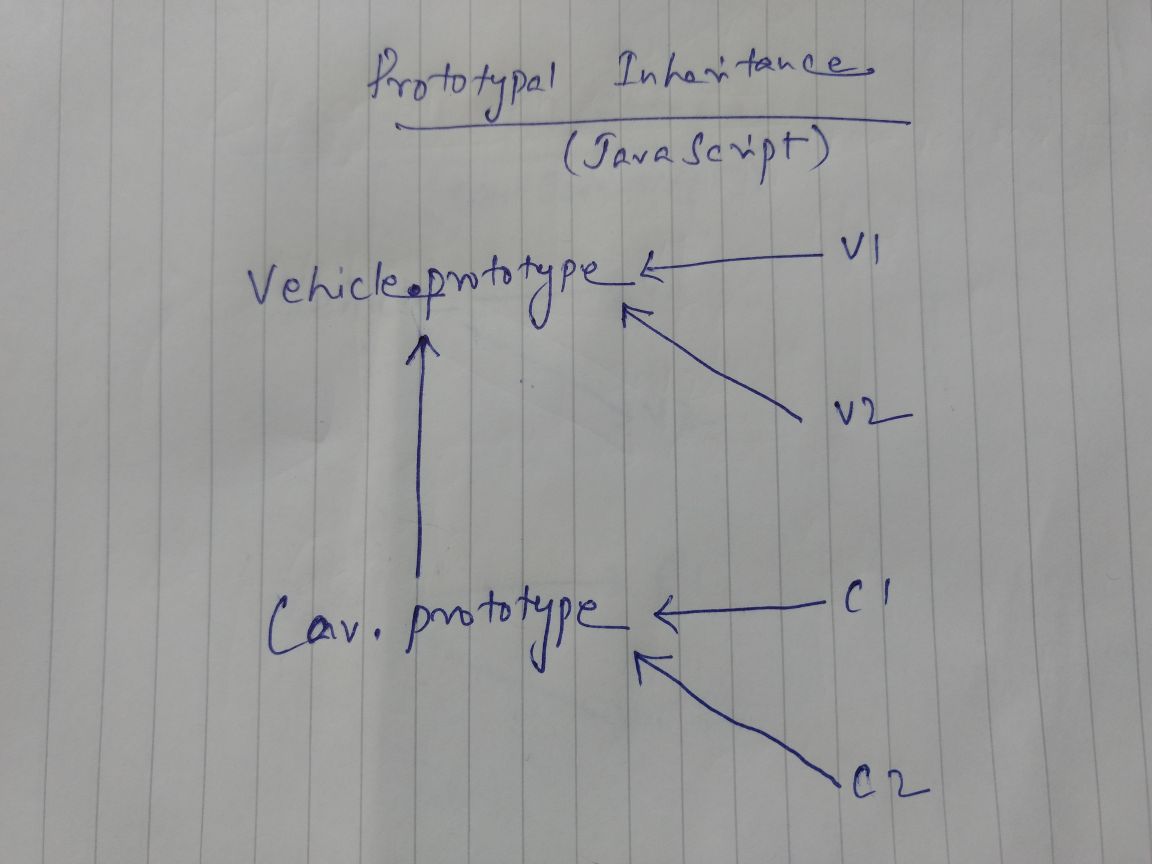 Prototypal Inheritance
(JavaScript)
Vehicle.prototype
V1
V2
Car. prototype
C1
C2